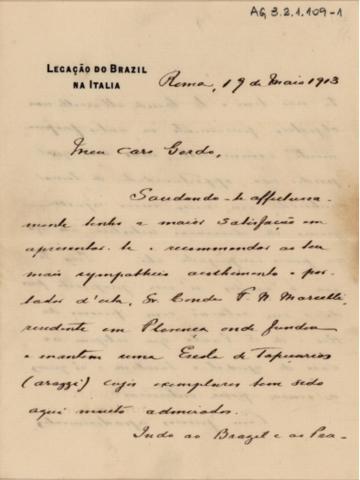 AG 3.2.1.109-1
LEGAÇÃO DO BRAZIL
NA ITALIA
Roma, 19 de Maio 1913
Meu caro Gordo,
Saudando-te affectuosa-
mente tenho a maior satisfação em
apresentar-te e recommendar ao teu
mais sympathico acolhimento o por-
tador d'esta, Sr. Conde F. N. Marcelli,
residente em Florença onde fundou
e mantem uma Escola de Tapessarias
(arazzi) cujos exemplares tem sido
aqui muito admirados.
Indo ao Brazil e ao Pra-